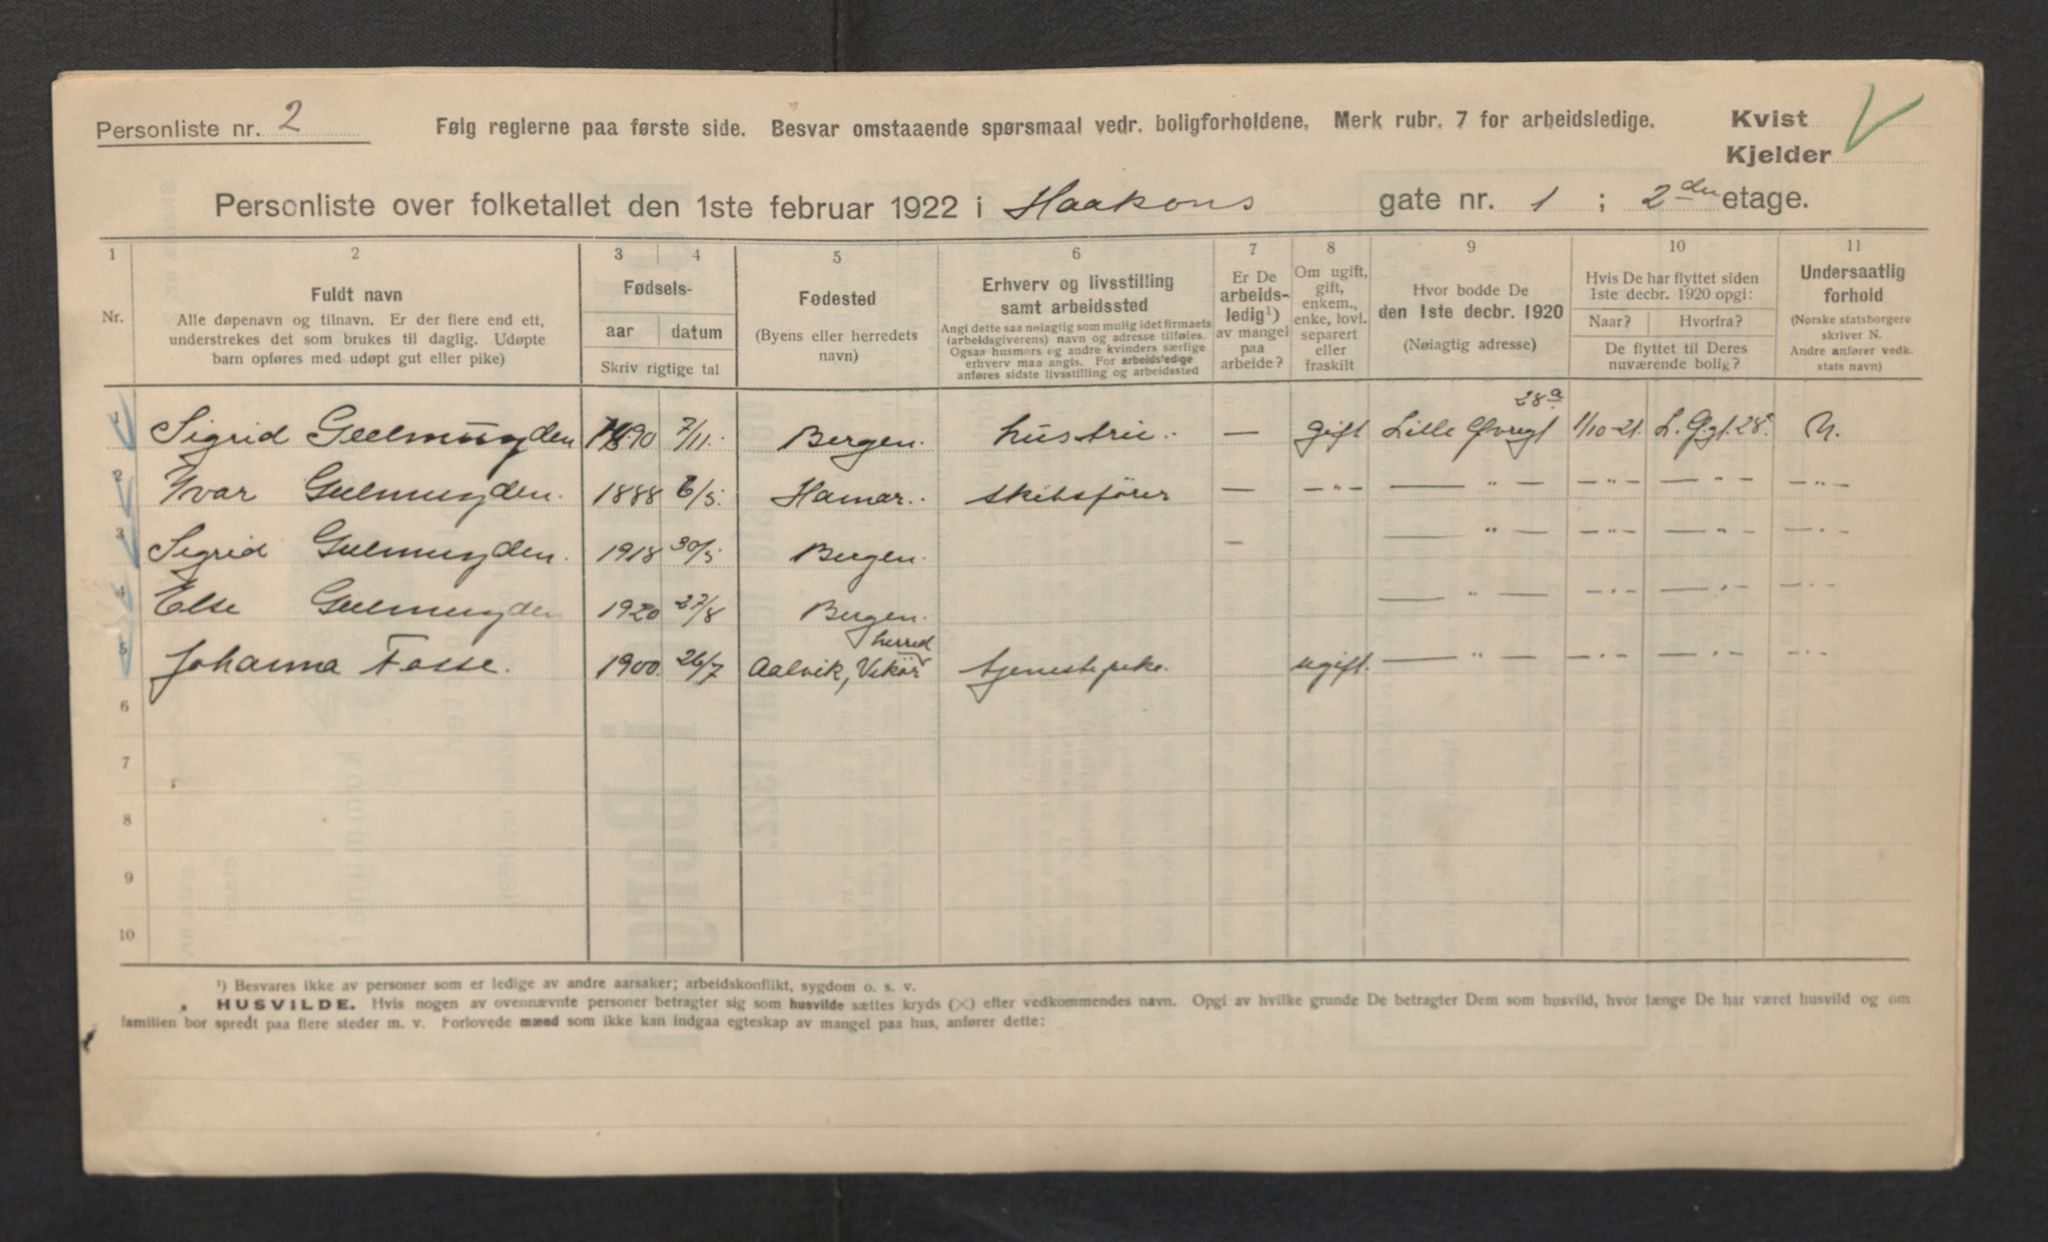 Personliste nr. 2 Følg reglerne paa første side. Besvar omstaaende spørsmaal vedr. boligforholdene. Merk rubr. 7 for arbeidsledige. Kvist
Kjelder
Personliste over folketallet den 1ste februar 1922 i Haakons gate nr. 1 ; 2den etage.
1 2 3 4 5 6 7 8 9 10 11
Nr.
Fuldt navn
Alle døpenavn og tilnavn. Er der flere end ett,
understrekes det som brukes til daglig. Udøpte
barn opføres med udøpt gut eller pike)
Fødsels-
aar datum
Skriv rigtige tal
Fødested
(Byens eller herredets
navn)
Erhverv og livsstilling
samt arbeidssted
Angi dette saa nøiagtig som mulig idet firmaets
(arbeidsgiverens) navn og adresse tilføies.
Ogsaa husmors og andre kvinders særlige
erhverv maa angis. For arbeidsledige
anføres sidste livsstilling og arbeidssted
Er De
arbeids-
ledig¹)
av mangel
paa
arbeide?
Om ugift,
gift,
enkem.,
enke, lovl.
separert
eller
fraskilt
Hvor bodde De
den 1ste decbr. 1920
(Nøiagtig adresse)
Hvis De har flyttet siden
1ste decbr. 1920 opgi:
Naar? Hvorfra?
De flyttet til Deres
nuværende bolig?
Undersaatlig
forhold
(Norske statsborgere
skriver N.
Andre anfører vedk.
stats navn)
28a
1 Sigrid Geelmuyden 1890 7/11. Bergen. hustru. — gift Lille Øvregt 1/10-21. L. Ø.gt. 28a. N.
2 Ivar Geelmuyden. 1888 6/5. Hamar. skibsfører — —"— — " — —"— — " — —"—
3 Sigrid Geelmuyden. 1918 30/5 Bergen. — — " — —"— — " — —"—
4 Else Geelmuyden 1920 27/8 Bergen. — " — —"— — " — —"—
herred
5 Johanna Fosse. 1900. 26/7 Aalvik, Vikør tjenestepike. ugift. — " — —"— — " — —"—
6
7
8
9
10
¹) Besvares ikke av personer som er ledige av andre aarsaker; arbeidskonflikt, sygdom o. s. v.
HUSVILDE. Hvis nogen av ovennævnte personer betragter sig som husvilde sættes kryds (×) efter vedkommendes navn. Opgi av hvilke grunde De betragter Dem som husvild, hvor længe De har været husvild og om
familien bor spredt paa flere steder m. v. Forlovede mænd som ikke kan indgaa egteskap av mangel paa hus, anfører dette: